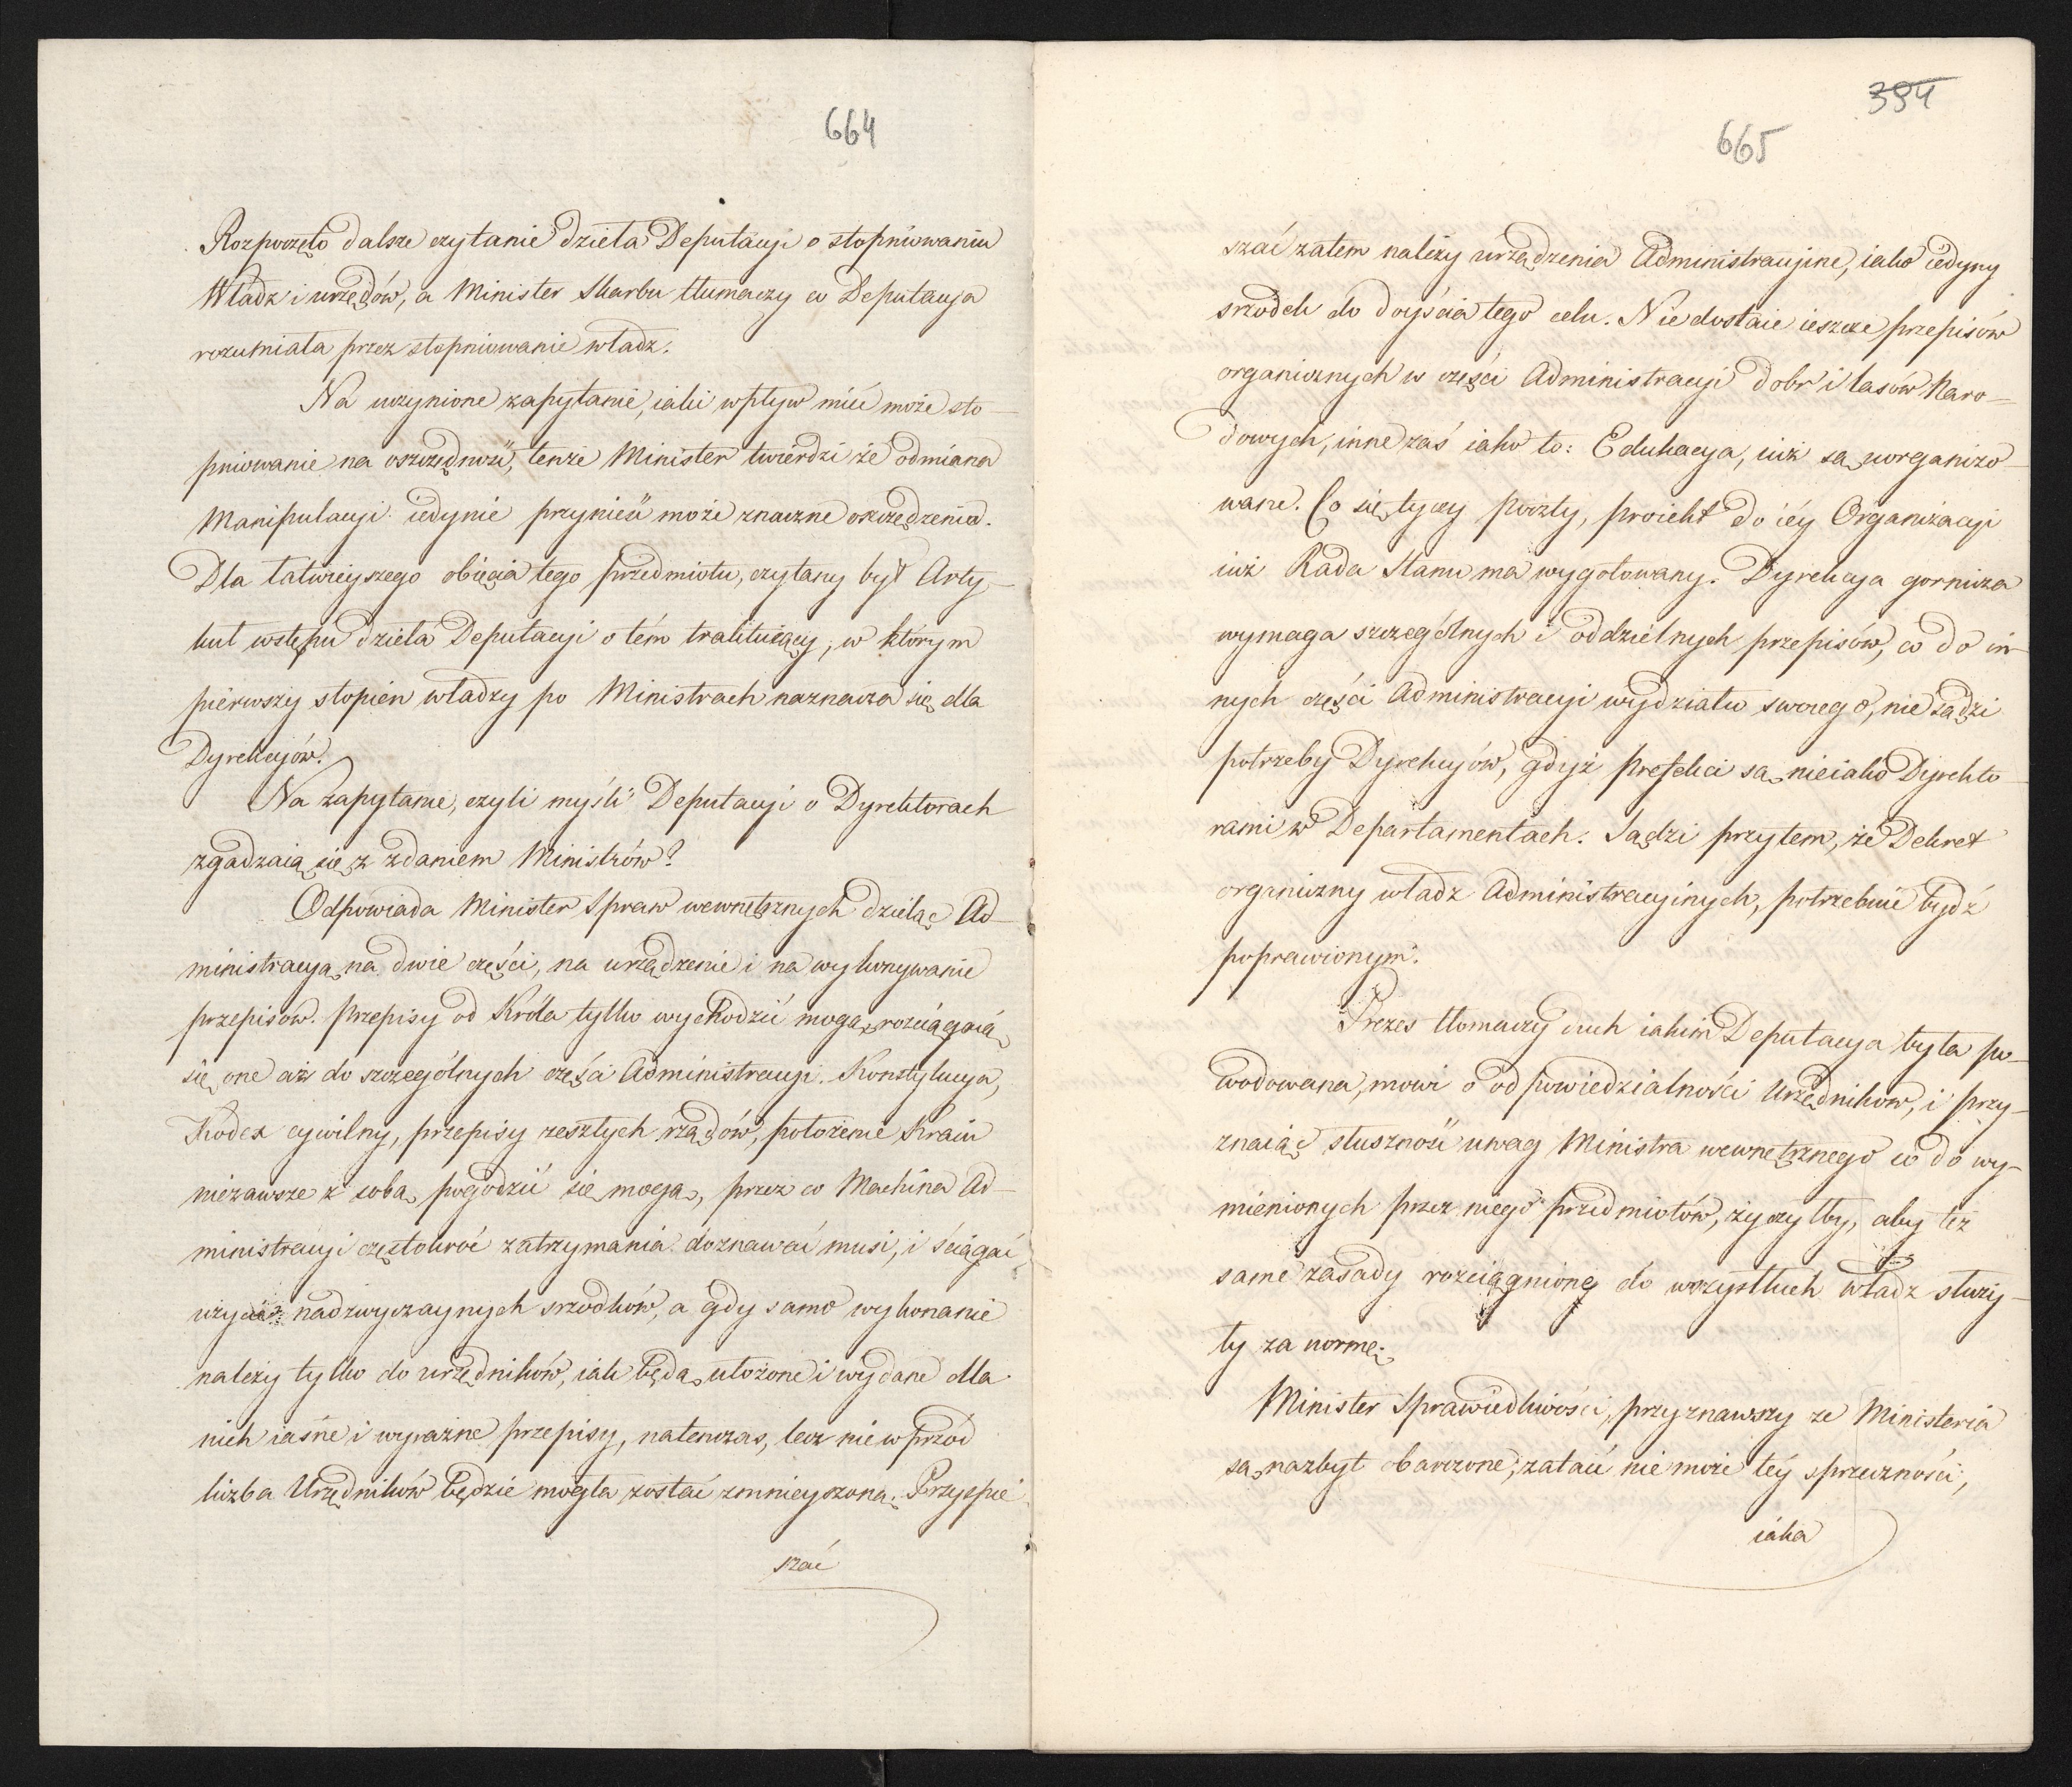 664
Rozpoczęto dalsze czytanie dzieła Deputacyi o stopniowaniu
Władz i urzędów, a Minister Skarbu tłumaczy co Deputacya
rozumiała przez stopniowanie władz.
Na uczynione zapytanie, iaki wpływ mieć może sto-
pniowanie na oszczędność, tenże Minister twierdzi że odmiana
Manipulacyi iedynie przynieść może znaczne oszczędzenia.
Dla łatwieyszego obięcia tego przedmiotu, czytany był Arty-
kuł wstępu dzieła Deputacyi o tém traktuiący, w którym
pierwszy stopień władzy po Ministrach naznacza się dla
Dyrekcyów.
Na zapytanie, czyli myśli Deputacyi o Dyrektorach
zgadzaią się z zdaniem Ministrów?
Odpowiada Minister Spraw wewnętrznych dzieląc Ad-
ministracyą na dwie części, na urządzenie i na wykonywanie
przepisów. Przepisy od Króla tylko wychodzić mogą, rozciągaią
się one aż do szczególnych części Administracyi. Konstytucya,
Kodex cywilny, przepisy zeszłych rządów, położenie Kraiu
niezawsze z sobą pogodzić się mogą, przez co Machina Ad-
ministracyi częstokroć zatrzymania doznawać musi, i ściągać
użycia nadzwyczaynych srzodków, a gdy samo wykonanie
należy tylko do urzędników, iak będą ułożone i wydane dla
nich iasne i wyraźne przepisy, natenczas, lecz nie wprzód
liczba Urzędników będzie mogła zostać zmnieyszoną. Przyspie
szać
394
665
szać zatem należy urządzenia Administracyine, iako iedyny
srzodek do doyścia tego celu. Nie dostaie ieszcze przepisów
organicznych w części Administracyi dobr i lasów Naro-
dowych, inne zaś iako to: Edukacya, iuż są uorganizo-
wane. Co się tyczy poczty, proiekt do iéy Organizacyi
iuż Rada Stanu ma wygotowany. Dyrekcya gornicza
wymaga szczególnych i oddzielnych przepisów, co do in-
nych części Administracyi wydziału swoiego, nie sądzi
potrzeby Dyrekcyów, gdyż prefekci są nieiako Dyrekto-
rami w Departamentach. Sądzi przytem, że Dekret
organiczny władz Administracyinych, potrzebuie bydź
poprawionym.
Prezes tłomaczy duch iakim Deputacya była po-
wodowana, mowi o odpowiedzialności Urzędnikow, i przy-
znaiąc słuszność uwag Ministra wewnętrznego co do wy-
mienionych przez niego przedmiotów, życzyłby, aby też
same zasady rozciągnione do wszystkich władz służy-
ły za normę.
Minister Sprawiedliwości, przyznawszy ze Ministeria
są nazbyt obarczone, zataić nie może téy sprzeczności,
iaka